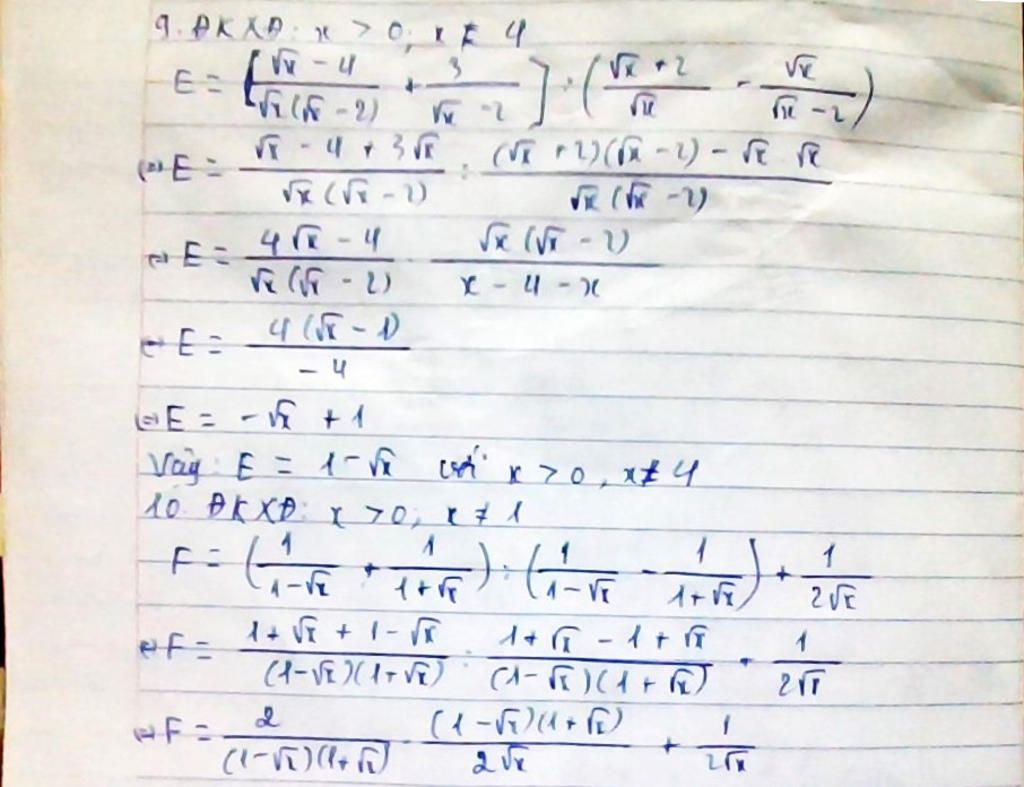 9. ĐKXĐ: x > 0; x ≠ 4
E = [(√x - 4)/(√x(√x - 2)) + 3/(√x - 2)] : ((√x + 2)/√x - √x/(√x - 2))
⇔ E = (√x - 4 + 3√x)/(√x(√x - 2)) : ((√x + 2)(√x - 2) - √x · √x)/(√x(√x - 2))
⇔ E = (4√x - 4)/(√x(√x - 2)) · (√x(√x - 2))/(x - 4 - x)
⇔ E = (4(√x - 1))/(-4)
⇔ E = -√x + 1
Vậy: E = 1 - √x với x > 0, x ≠ 4
10. ĐKXĐ: x > 0; x ≠ 1
F = (1/(1-√x) + 1/(1+√x)) : (1/(1-√x) - 1/(1+√x)) + 1/(2√x)
⇔ F = (1+√x + 1-√x)/((1-√x)(1+√x)) : (1+√x - 1+√x)/((1-√x)(1+√x)) + 1/(2√x)
⇔ F = 2/((1-√x)(1+√x)) · ((1-√x)(1+√x))/(2√x) + 1/(2√x)